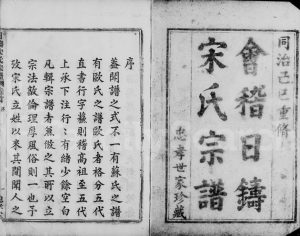 同治己巳重脩
會稽日鑄
宋氏宗譜
忠孝世家珍藏
序
蓋聞譜之式不一有蘇氏之譜
有歐氏之譜歐氏者格分五代
直書行字籤則稽高祖至五代
上承下注行〻有緒少餘空白
凡輯宗譜者兼倣之其所以立
宗法敘倫理厚風俗則一也予
攷宋氏立姓以來其間聞人之